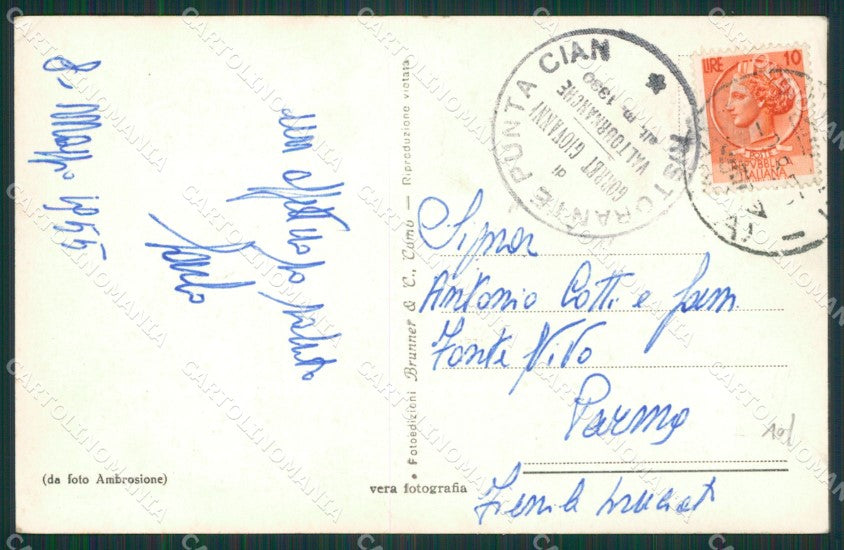 8-Maggio 1955
un affettuoso saluto
Carlo
(da foto Ambrosione)
vera fotografia
• Fotoedizioni Brunner & C., Como — Riproduzione vietata
RISTORANTE PONTA CIAN
di
GORRET GIOVANNI
VALTOURNANCHE
alt. m. 1390
LIRE 10
POSTE
REPUBBLICA
ITALIANA
Signor
Antonio Cotti e fam
Fonte Vivo
Parma
CARTOLINOMANIA